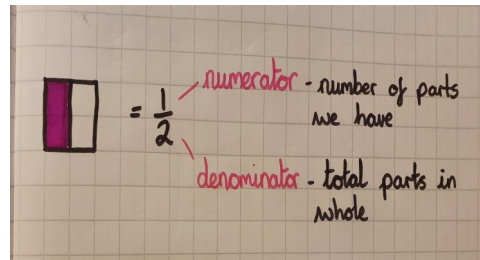 = 1/2
numerator - number of parts
we have
denominator - total parts in
whole